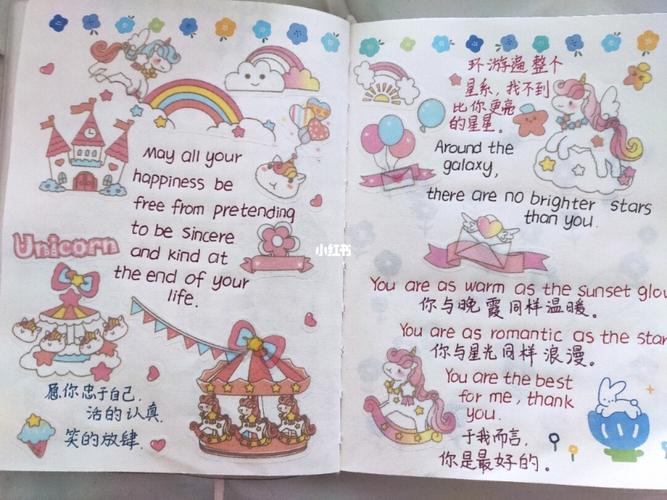 May all your
happiness be
free from pretending
to be sincere
and kind at
the end of your
life.
Unicorn
愿你忠于自己,
活的认真,
笑的放肆.
小红书
环游遍整个
星系,找不到
比你更亮
的星星。
Around the
galaxy,
there are no brighter stars
than you.
You are as warm as the sunset glow
你与晚霞同样温暖。
You are as romantic as the star
你与星光同样浪漫。
You are the best
for me, thank
you.
于我而言,
你是最好的。